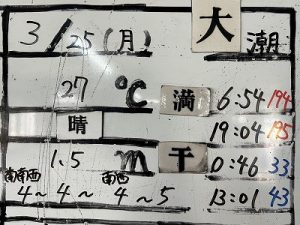 3/25(月) 大潮
27℃ 満 6:54 194
晴 19:04 195
1.5m 干 0:46 33
南南西 南西
4～4～4～5 13:01 43